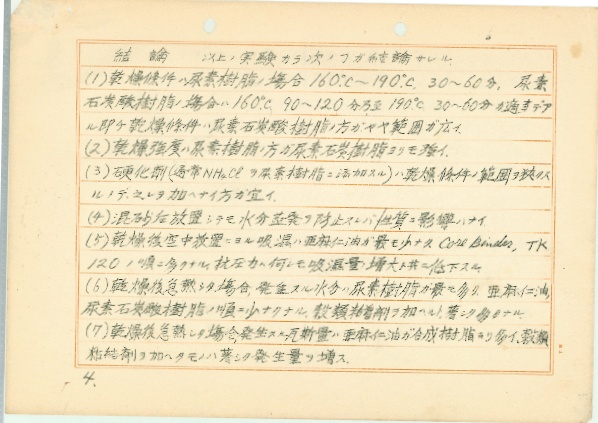 結論　以上ノ実験カラ次ノコトガ結論サレル.
(1)乾燥條件ハ尿素樹脂ノ場合 160°C～190°C, 30～60分, 尿素
石炭酸樹脂ノ場合ハ160°C, 90～120分乃至190°C, 30～60分ガ適当デア
ル即チ乾燥條件ハ尿素石炭酸樹脂ノ方ガヤヤ範囲ガ広イ.
(2)乾燥強度ハ尿素樹脂ノ方ガ尿素石炭樹脂ヨリモ強イ.
(3)硬化剤(通常NH4Clヲ尿素樹脂ニ添加スル)ハ乾燥條件ノ範囲ヲ狭クス
ルノデ,之レヲ加ヘナイ方ガ宜イ.
(4)混砂后放置シテモ水分蒸発ヲ防止スレバ性質ニ影響ハナイ
(5)乾燥後空中放置ニヨル吸湿ハ亜麻仁油ガ最モ少ナク Core Binder, TK
120ノ順ニ多クナル,抗圧力ハ何レモ吸湿量ノ増大ト共ニ低下スル
(6)乾燥後急熱シタ場合,発生スル水分ハ尿素樹脂ガ最モ多ク,亜麻仁油,
尿素石炭酸樹脂ノ順ニ少ナクナル,穀類粘結剤ヲ加ヘルト著シク多クナル.
(7)乾燥後急熱シタ場合発生スル瓦斯量ハ亜麻仁油ガ合成樹脂ヨリ多イ,穀類
粘結剤ヲ加ヘタモノハ著シク発生量ヲ増ス.
4.